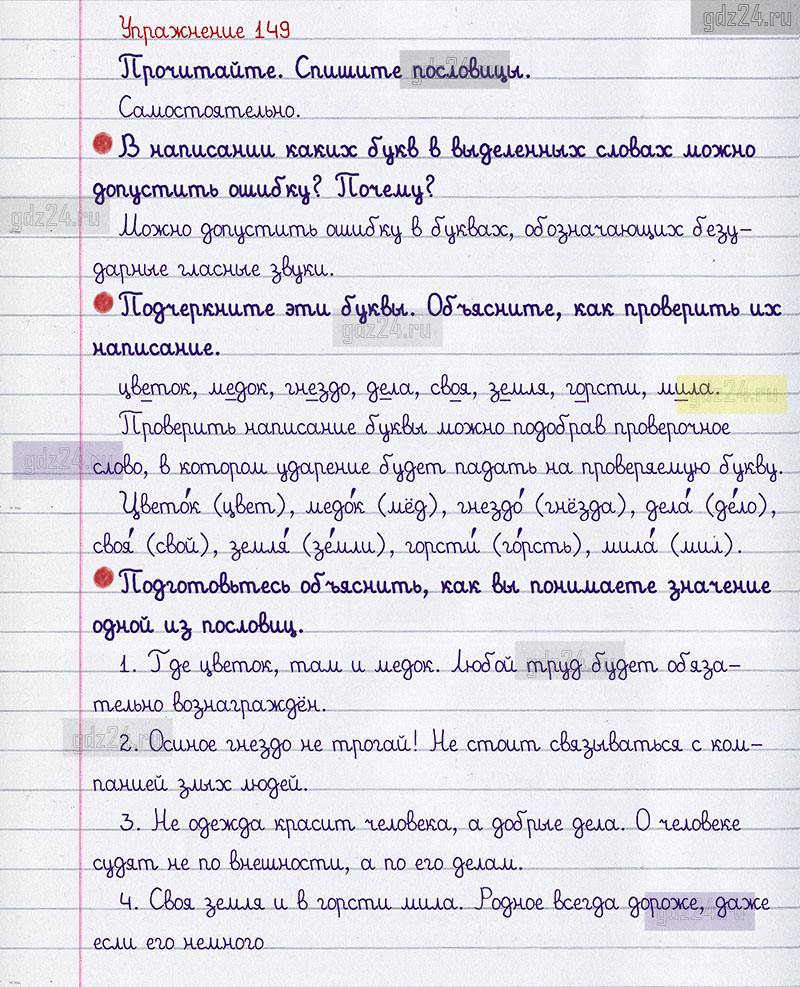 gdz24.ru
Упражнение 149
Прочитайте. Спишите пословицы.
gdz24.ru
Самостоятельно.
В написании каких букв в выделенных словах можно
допустить ошибку? Почему?
gdz24.ru
Можно допустить ошибку в буквах, обозначающих безу-
дарные гласные звуки.
Подчеркните эти буквы. Объясните, как проверить их
gdz24.ru
написание.
цветок, медок, гнездо, дела, своя, земля, горсти, мила.
gdz24.ru
Проверить написание буквы можно подобрав проверочное
слово, в котором ударение будет падать на проверяемую букву.
gdz24.ru
Цвето́к (цвет), медо́к (мёд), гнездо́ (гнёзда), дела́ (де́ло),
своя́ (свой), земля́ (зе́мли), горсти́ (го́рсть), мила́ (мил).
Подготовьтесь объяснить, как вы понимаете значение
одной из пословиц.
1. Где цветок, там и медок. Любой труд будет обяза-
gdz24.ru
тельно вознаграждён.
2. Осиное гнездо не трогай! Не стоит связываться с ком-
gdz24.ru
панией злых людей.
3. Не одежда красит человека, а добрые дела. О человеке
судят не по внешности, а по его делам.
4. Своя земля и в горсти мила. Родное всегда дороже, даже
gdz24.ru
если его немного